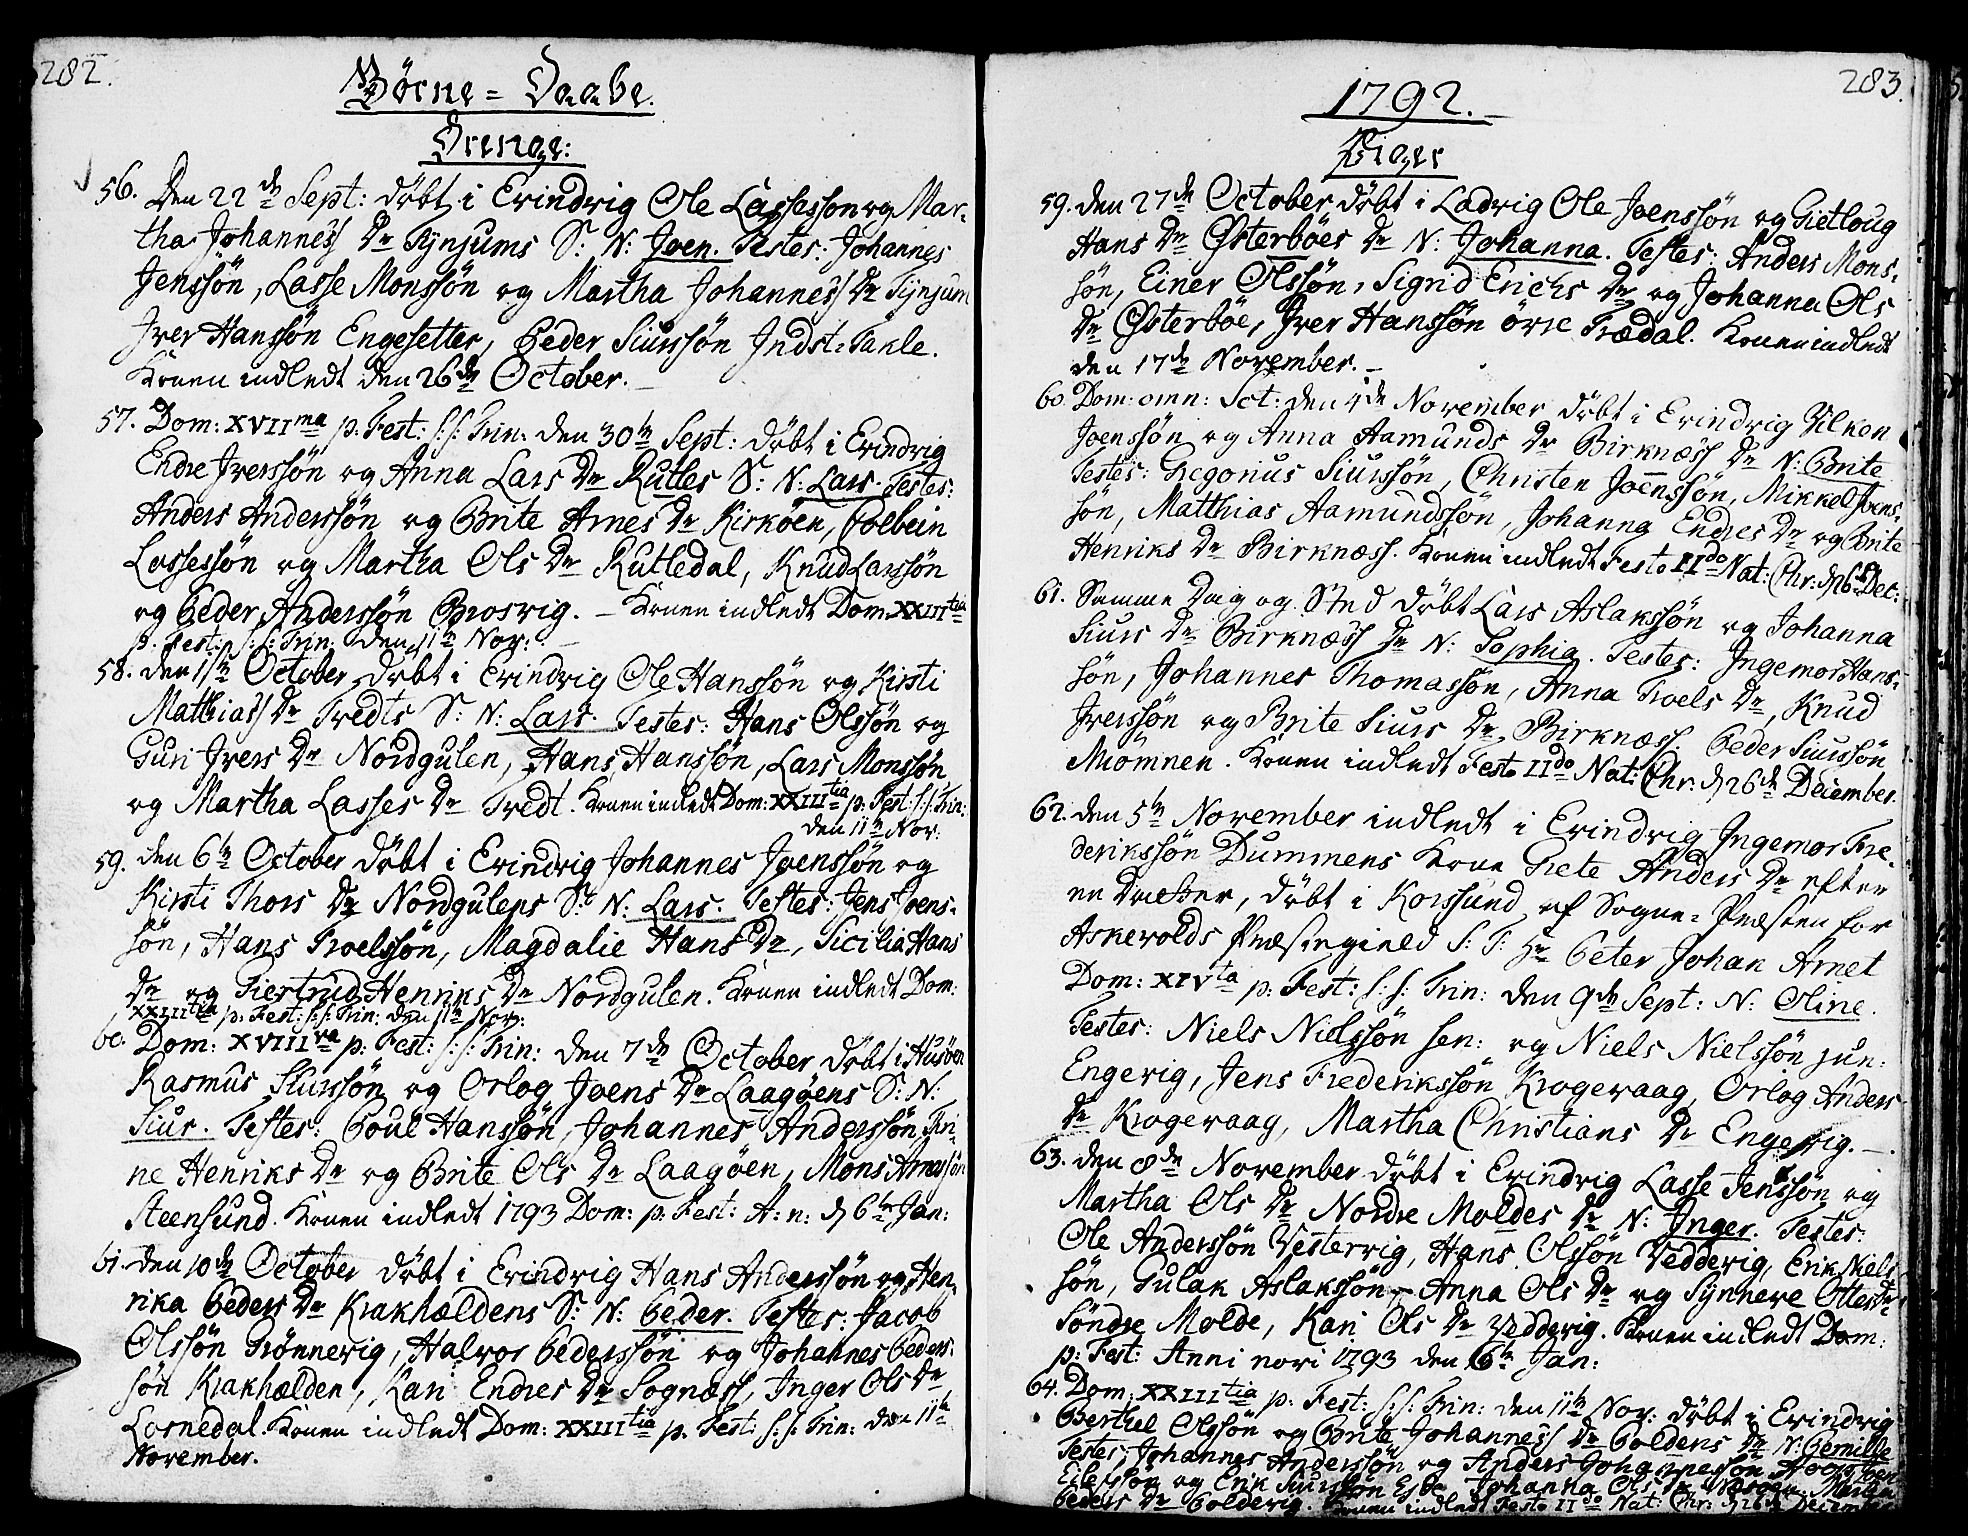 282.
Börne=Daabe.
Drenge:
56. Den 22de Sept: döbt i Evindvig Ole Lassessön og Mar-
tha Johanness Dr Tynjums S: N: Joen. Testes: Johannes
Jenssön, Lasse Monssön og Martha Johanness Dr Tynjum
Iver Hanssön Engesetter, Peder Siurssön Indst: Takle.
Konen indledt den 26de October.
57. Dom: XVIIma p. Fest: S:S: Trin: den 30te Sept: döbt i Evindvig
Endre Iverssön og Anna Lars Dr Rutles S: N: Lars. Testes:
Anders Anderssön og Brite Arnes Dr Kirköen, Colbein
Lassessön og Martha Ols Dr Rutledal, Knud Larssön
og Peder Anderssön Brosvig. – Konen indledt Dom: XXIIItia
p. Fest: S:S: Trin: den 11te Nov:
58. den 1ste October döbt i Evindvig Ole Hanssön og Kirsti
Matthiass Dr Tredts S: N: Lars. Testes: Hans Olssön og
Guri Ivers Dr Nordgulen, Hans Hanssön, Lars Monssön
og Martha Lasses Dr Tredt. Konen indledt Dom: XXIIItia p: Fest: S:S: Trin:
den 11te Nov:
59. den 6te October döbt i Evindvig Johannes Joenssön og
Kirsti Thors Dr Nordgulens S: N: Lars: Testes: Jens Joens-
sön, Hans Troelssön, Magdalie Hans Dr, Sicilia Hans
Dr og Giertrud Henriks Dr Nordgulen. Konen indledt Dom:
XXIIItia p: Fest: S:S: Trin: den 11te Nov:
60. Dom: XVIIIva p: Fest: S:S: Trin: den 7de October döbt i Husöen
Rasmus Siurssön og Orlog Joens Dr Laagöens S: N:
Siur. Testes: Poul Hanssön, Johannes Anderssön, Sin-
ne Henriks Dr og Brite Ols Dr Laagöen, Mons Arnessön
Steensund. Konen indledt 1793 Dom: p: Fest: A: n: d 6te Jan:
61. den 10de October döbt i Evindvig Hans Anderssön og Hen-
rika Peders Dr Krakhældens S: N: Peder. Testes: Jacob
Olssön Grönnevig, Halvor Pederssön og Johannes Peders-
sön Krakhælden, Kari Endres Dr Sognæss, Inger Ols Dr
Lornedal. Konen indledt Dom: XXIIItia p. Fest: S:S: Trin: den 11te
November.
283.
1792.
Piger
59. den 27de October döbt i Ladvig Ole Joenssön og Gietloug
Hans Dr Österböes Dr N: Johanna. Testes: Anders Mons-
sön, Einer Olssön, Sigrid Erichs Dr og Johanna Ols
Dr Österböe, Iver Hanssön övre Trædal. Konen indledt
den 17de November.
60. Dom: omn: Sct: den 4de November döbt i Evindvig Vilken
Joenssön og Anna Aamunds Dr Birknæss Dr N: Brite
Testes: Gregorius Siurssön, Christen Joenssön, Mikkel Joens-
sön, Matthias Aamundssön, Johanna Endres Dr og Brite
Henriks Dr Birknæss. Konen indledt Festo IIdo Nat: Chr: d 26de Dec:
61. Samme Dag og Sted döbt Lars Aslakssön og Johanna
Siurs Dr Birknæss Dr N: Sophia. Testes: Ingemor Hans-
sön, Johannes Thomassön, Anna Troels Dr, Knud
Iverssön og Brite Siurs Dr Birknæss. Peder Siurssön
Miömnen. Konen indledt Festo IIdo Nat: Chr: d 26de December.
62. den 5te November indledt i Evindvig Ingemor Fre-
derikssön Dummens Kone Grete Anders Dr efter
en Datter, döbt i Korssund af Sogne-Præsten for
Askevolds Præstegield S: T: Hr Peter Johan Arnet
Dom: XIVta p: Fest: S: S: Trin: den 9de Sept: N: Oline.
Testes: Niels Nielssön sen: og Niels Nielssön jun:
Engevig, Jens Frederikssön Krogevaag, Orlog Anders
Dr Krogevaag, Martha Christians Dr Engevig.
63. den 8de November döbt i Evindvig Lasse Jenssön og
Martha Ols Dr Nordre Moldes Dr N: Inger. Testes:
Ole Anderssön Vestervig, Hans Olssön Veddevig, Erik Niels-
sön, Gulak Aslakssön, Anna Ols Dr og Synneve Otters Dr
Söndre Molde, Kari Ols Dr Vedderig. Konen indledt Dom:
p: Fest: Anni novi 1793 den 6te Jan:
64. Dom: XXIIItia p: Fest: S:S: Trin: den 11te Nov: döbt i Evindvig
Berthel Olssön og Brite Johanness Dr Poldens Dr N: Pernille
Testes: Johannes Anderssön og Anders Johannessön
og Erik Siurssön Johanna Ols Dr
Peders Dr Poldevig. Konen indledt Festo IIdo Nat: Chr: d 26de December